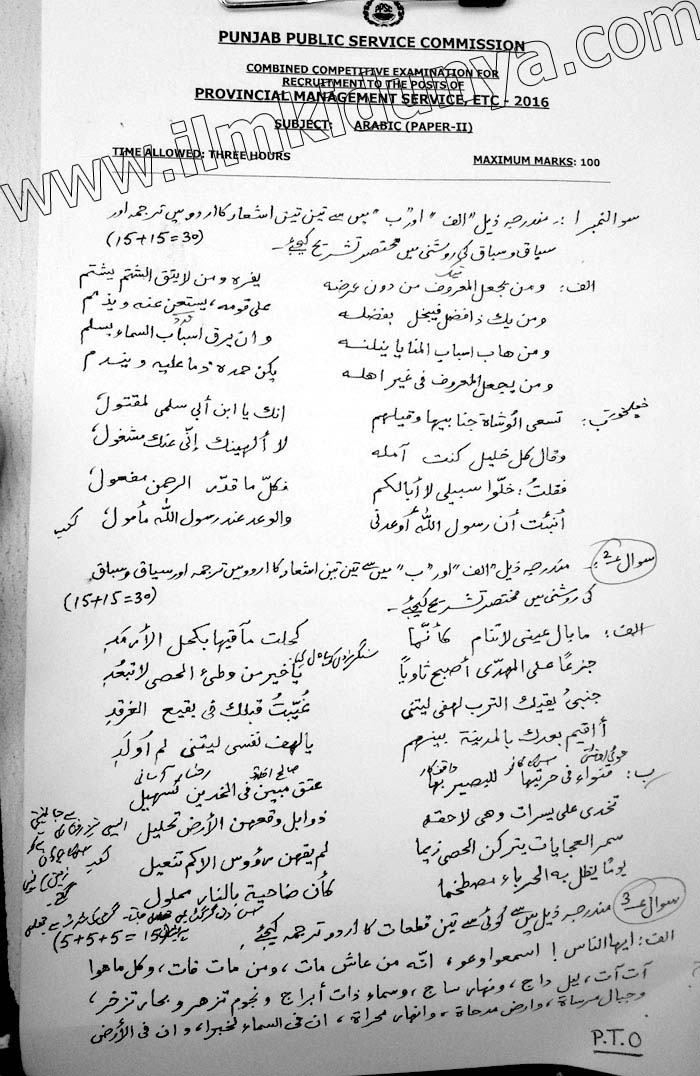 PPSC
PUNJAB PUBLIC SERVICE COMMISSION
COMBINED COMPETITIVE EXAMINATION FOR
RECRUITMENT TO THE POSTS OF
PROVINCIAL MANAGEMENT SERVICE, ETC - 2016
SUBJECT: ARABIC (PAPER-II)
TIME ALLOWED: THREE HOURS MAXIMUM MARKS: 100
www.ilmkidunya.com
سوال نمبر 1:۔ مندرجہ ذیل "الف" اور "ب" میں سے تین تین اشعار کا اردو میں ترجمہ اور
سیاق و سباق کی روشنی میں مختصر تشریح کیجئے۔ (15+15=30)
الف: ومن يجعل المعروف من دون عرضه يفره ومن لا يتق الشتم يشتم
ومن يك ذا فضل فيبخل بفضله على قومه، يستغن عنه ويذمم
ومن هاب اسباب المنايا ينلنه وان يرق اسباب السماء بسلم
ومن يجعل المعروف في غير اهله يكن حمده ذما عليه ويندم
ب: تسعى الوشاة جنابيها وقيلهم انك يا ابن أبي سلمى لمقتولُ
وقال كل خليل كنت آمله لا ألهينك إنّي عنك مشغولُ
فقلتُ: خلّوا سبيلي لا أبا لكم فكلّ ما قدّر الرحمن مفعولُ
أنبئت أن رسول الله أوعدني والوعد عند رسول الله مأمولُ
سوال 2:۔ مندرجہ ذیل "الف" اور "ب" میں سے تین تین اشعار کا اردو میں ترجمہ اور سیاق و سباق
کی روشنی میں مختصر تشریح کیجئے۔ (15+15=30)
الف: ما بال عيني لا تنام كأنّما كحلت مآقيها بكحل الأرمدِ
جزعًا على المهدّى أصبح ثاويًا يا خير من وطئ الحصى لا تبعدِ
جنبي يقيك الترب لهفي ليتني غُيّبتُ قبلك في بقيع الغرقدِ
أ اقيم بعدك بالمدينة بينهم يالهف نفسي ليتني لم اُولَدِ
ب: قنواء في حرتيها للبصير بها عتق مبين في الخدين تسهيل
تخدى على يسرات وهى لاحقة ذوابل وقعهن الأرض تحليل
سمر العجايات يتركن الحصى زيما لم يقهن رؤوس الاكم تنعيل
يومًا يظل به الحرباء مصطخما كأن ضاحية بالنار مملول
سوال 3 مندرجہ ذیل میں سے کوئی سے تین قطعات کا اردو ترجمہ کیجئے۔ (5+5+5=15)
الف: ايها الناس! اسمعوا وعوا، انّه من عاش مات، ومن مات فات، وكل ما هو
آت آت، ليل داج، ونهار ساج، وسماء ذات أبراج و نجوم تزهر و بحار تزخر،
وجبال مرساة، وارض مدحاة، وانهار مجراة، ان في السماء لخبرا، وان في الأرض
P.T.O